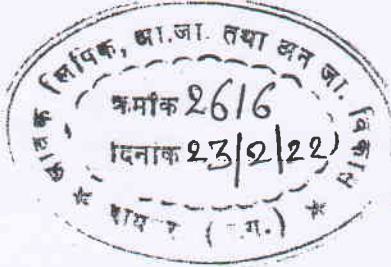 आवक लिपिक, आ.जा. तथा अन जा. विकास
क्रमांक 2616
दिनांक 23/2/22